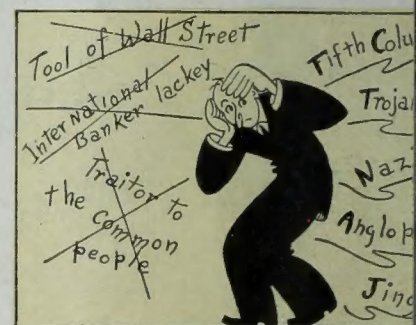 Tool of Wall Street
International
Banker lackey
Traitor to
the common
people
Fifth Colu
Troja
Naz
Anglop
Jing